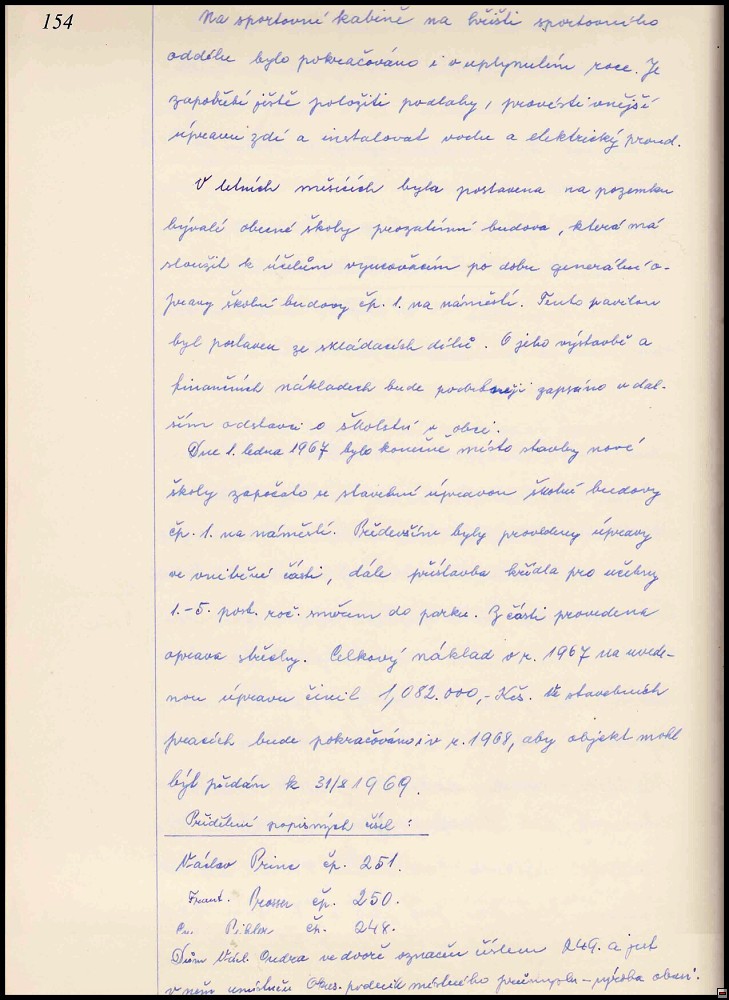 154
Na sportovní kabině na hřišti sportovního
oddílu bylo pokračováno i v uplynulém roce. Je
zapotřebí ještě položiti podlahy, provésti vnější
úpravu zdí a instalovat vodu a elektrický proud.
V letních měsících byla postavena na pozemku
bývalé obecné školy prozatímní budova, která má
sloužit k účelům vyučovacím po dobu generální o-
pravy školní budovy čp. 1. na náměstí. Tento pavilon
byl postaven ze skládacích dílů. O jeho výstavbě a
finančních nákladech bude podrobněji zapsáno v dal-
ším odstavci o školství v obci.
Dne 1. ledna 1967 bylo konečně místo stavby nové
školy započato se stavební úpravou školní budovy
čp. 1. na náměstí. Především byly provedeny úpravy
ve vnitřní části, dále přístavba křídla pro učebny
1.-5. post. roč. směrem do parku. Z části provedena
oprava střechy. Celkový náklad v r. 1967 na uvede-
nou úpravu činil 1,082.000,- Kčs. Ve stavebních
pracích bude pokračováno i v r. 1968, aby objekt mohl
být předán k 31/8 1969.
Přidělení popisných čísel :
Václav Princ čp. 251.
Frant. Prosser čp. 250.
čp. 248.
Dům Václ. Ondra ve dvoře označen číslem 249. a jest
v něm umístěn Okres. podnik místního průmyslu - výroba obuvi.